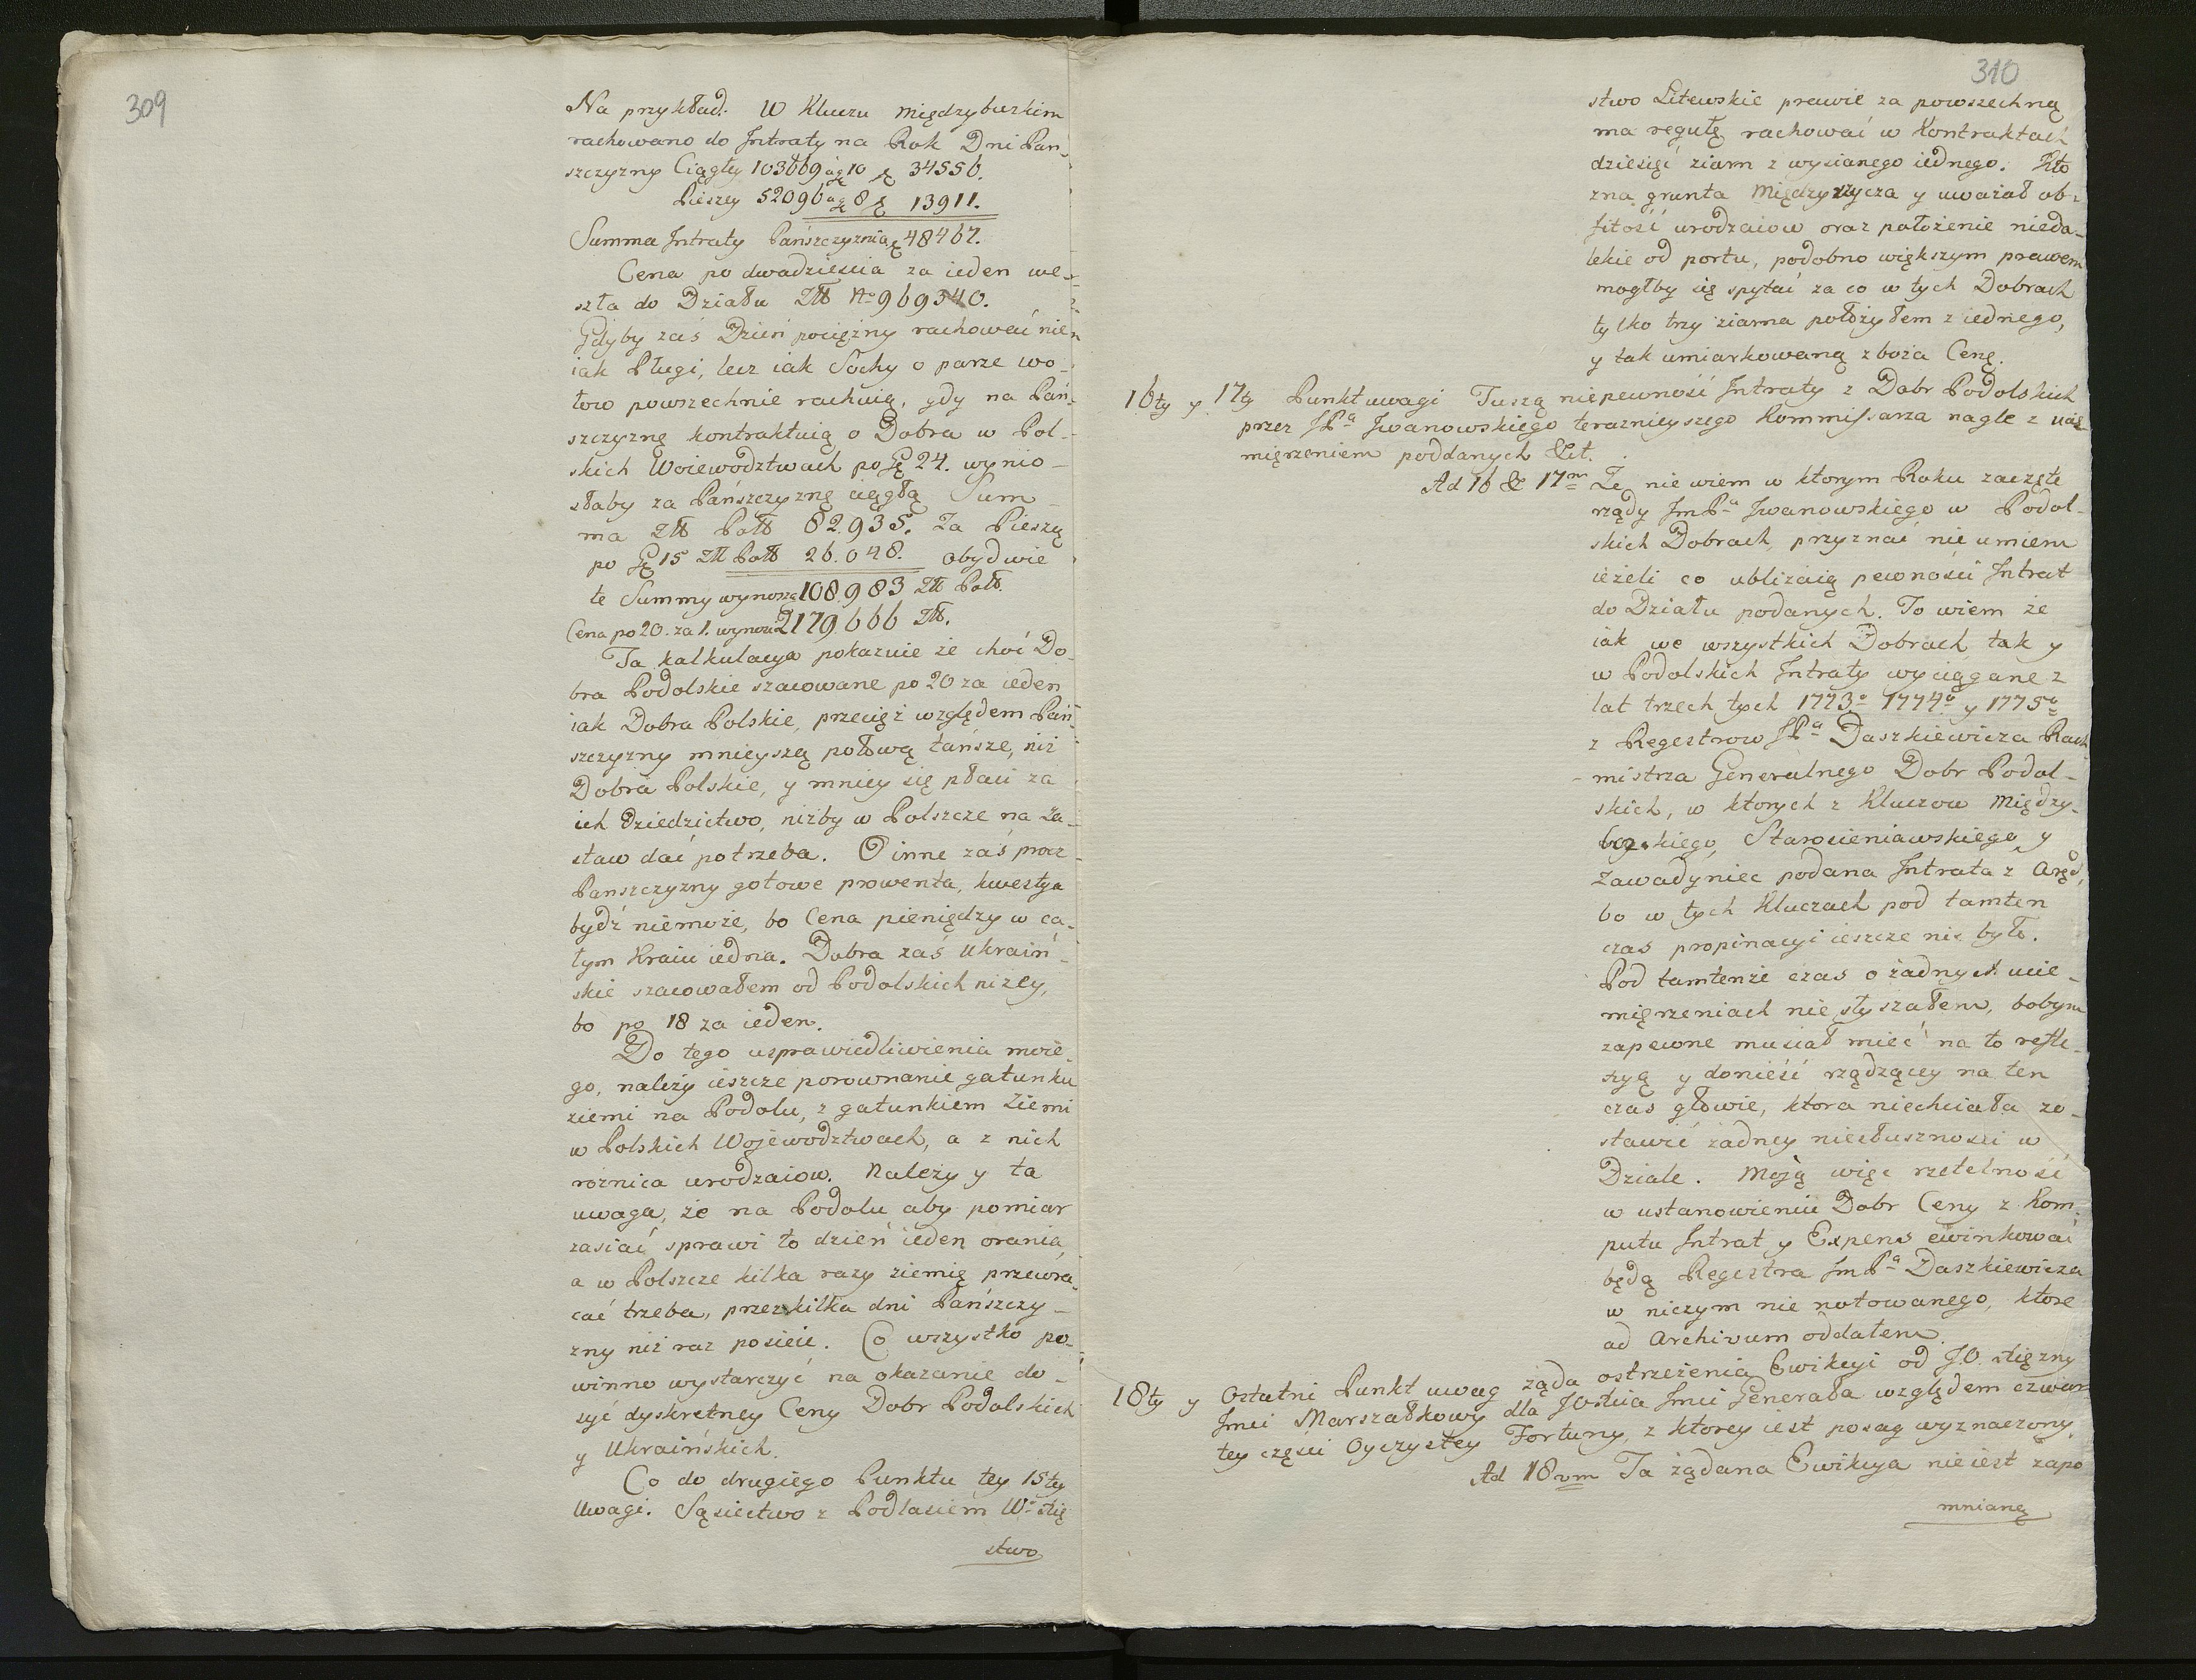 309
Na przykład: W Kluczu Międzybuzkim
rachowano do Jntraty na Rok Dni Pan-
szczyzny Ciągłey 103669 à gę 10 f 34556.
Pieszey 52096 à gę 8 f 13911.
Summa Jntraty Pańszczyznią f 48467.
Cena po dwadziescia za ieden we-
szła do Działu Złł No 969340.
Gdyby zaś Dzień pociężny rachować nie
iak Pługi, lecz iak Sochy o parze wo-
łow powszechnie rachuią, gdy na Pań-
szczyznę kontraktuią o Dobra w Pol-
skich Woiewodztwach po gę 24. wynio-
słaby za Pańszczyznę ciągłą Sum-
ma Złł Polł 82.935. Za Pieszą
po gę 15 Złł Polł 26.048. obydwie
te Summy wynoszą 108.983 Złł Polł.
Cena po 20. za 1. wynosi 2179.666 Złł.
Ta kalkulacya pokazuie że choć Do-
bra Podolskie szacowane po 20 za ieden
iak Dobra Polskie, przecięż względem Pań-
szczyzny mnieyszą połową tańsze, niż
Dobra Polskie, y mniey się płaci za
ich dziedzictwo, niżby w Polszcze na Za-
staw dać potrzeba. O inne zaś procz
Panszczyzny gotowe prowenta, kwestya
bydź niemoże, bo Cena pieniędzy w ca-
łym Kraiu iedna. Dobra zaś Ukraiń-
skie szacowałem od Podolskich niżey,
bo po 18 za ieden.
Do tego usprawiedliwienia moie-
go, należy ieszcze porownanie gatunku
ziemi na Podolu, z gatunkiem Ziemi
w Polskich Wojewodztwach, a z nich
rożnica urodzaiow. Należy y ta
uwaga, że na Podolu aby pomiar
zasiać sprawi to dzień ieden orania,
a w Polszcze kilka razy ziemię przewra-
cać trzeba, przez kilka dni Pańszczy-
zny niż raz posieie. Co wszystko po-
winno wystarczyć na okazanie do-
syć dyskretney Ceny Dobr Podolskich
y Ukraińskich.
Co do drugiego Punktu tey 15tey
Uwagi. Sąsiectwo z Podlasiem Wo Xię
stwo
310
stwo Litewskie prawie za powszechną
ma regułę rachować w Kontraktach
dziesięć ziarn z wysianego iednego. Kto
zna grunta Międzyrzycza y uważał ob-
fitość urodzaiow oraz położenie nieda-
lekie od portu, podobno większym prawem
mogłby się spytać za co w tych Dobrach
tylko trzy ziarna położyłem z iednego,
y tak umiarkowaną zboża Cenę.
16ty y 17ty Punkt uwagi Tuszą niepewność Jntraty z Dobr Podolskich
przez JPa Jwanowskiego teraznieyszego Kommissarza nagle z ucię-
mięrzeniem poddanych &ct.
Ad 16 & 17m Że nie wiem w ktorym Roku zaczęte
rządy JmPa Jwanowskiego w Podol-
skich Dobrach, przyznać nie umiem
ieżeli co ubliżaią pewności Jntrat
do Działu podanych. To wiem że
iak we wszystkich Dobrach, tak y
w Podolskich Jntraty wyciągane z
lat trzech tych 1773o 1774o y 1775o
z Regestrow JPa Daszkiewicza Rach
mistrza Generalnego Dobr Podol-
skich, w ktorych z Kluczow Między-
bozkiego, Starosieniawskiego y
Zawadyniec podana Jntrata z Aręd,
bo w tych Kluczach pod tamten
czas propinacyi ieszcze nie było.
Pod tamtenże czas o żadnych ucie-
mięrzeniach nie słyszałem, bobym
zapewne musiał mieć na to refle-
xyą y donieść rządzącey na ten
czas głowie, ktora niechciała zo-
stawić żadney niesłuszności w
Dziale. Moją więc rzetelność
w ustanowieniu Dobr Ceny z Kom-
putu Jntrat y Expens ewinkować
będą Regestra JmPa Daszkiewicza
w niczym nie notowanego, ktore
ad Archivum oddałem.
18ty y Ostatni Punkt uwag żąda ostrzeżenia Ewikcyi od J.O. Xiężny
Jmci Marszałkowy dla JOXcia Jmci Generała względem czwar
tey części Oyczystey Fortuny, z ktorey iest posag wyznaczony.
Ad 18vm Ta żądana Ewikcya nie iest zapo
mnianą